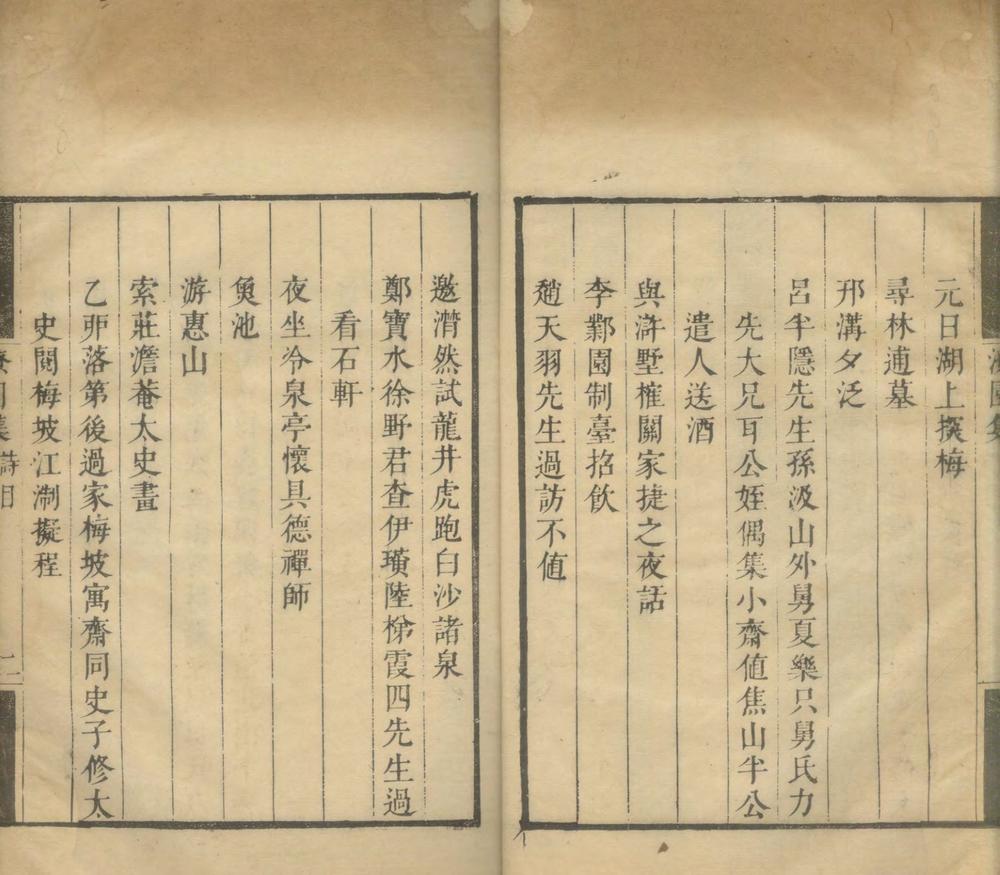 元日湖上探梅
尋林逋墓
邗溝夕泛
呂半隱先生孫汲山外舅夏樂只舅氏力
先大兄耳公姪偶集小齋值焦山半公
遣人送酒
與滸墅榷關家捷之夜話
李鄴園制臺招飲
趙天羽先生過訪不值
邀潸然試龍井虎跑白沙諸泉
鄭寶水徐野君查伊璜陸梯霞四先生過
看石軒
夜坐冷泉亭懷具德禪師
魚池
游惠山
索莊澹菴太史畫
乙丣落第後過家梅坡寓齋同史子修太
史閱梅坡江淛擬程
集 詩目
二